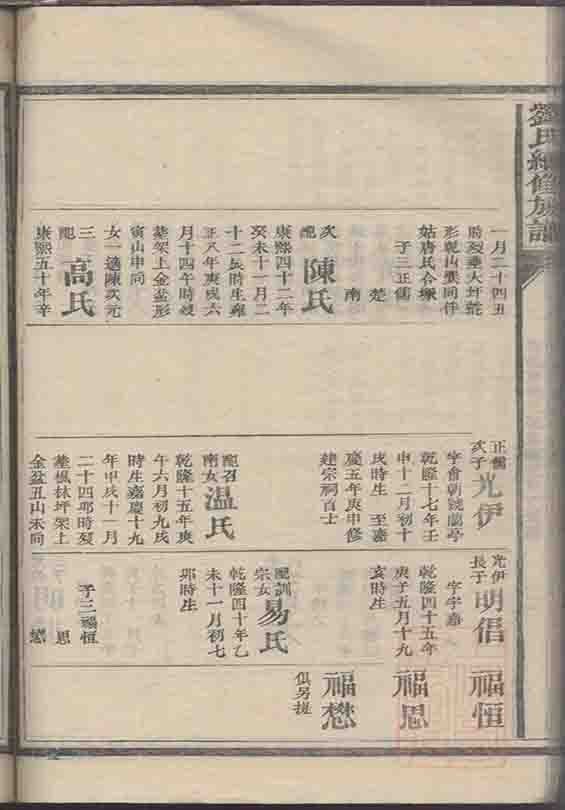 劉氏續修族譜
一月二十四丑
時歿葬大坪乾
形乾山巽向仵
姑唐氏合墩
子三正儒
楚
南
次配陳氏
康熙四十二年
癸未十一月二
十二辰時生雍
正八年庚戌六
月十四午時歿
葬架上金盆形
寅山申向
女一適陳次元
三配高氏
康熙五十年辛
正儒次子光伊
字會朝號蘭亭
乾隆十七年壬
申十二月初十
戌時生 至嘉
慶五年庚申修
建宗祠首士
配召南女温氏
乾隆十五年庚
午六月初九戌
時生嘉慶十九
年甲戌十一月
二十四卯時歿
葬楓林坪架上
金盆丑山未向
光伊長子明侣
字宇嘉
乾隆四十五年
庚子五月十九
亥時生
配訓宗女易氏
乾隆四十年乙
未十一月初七
卯時生
子三福恒
思
懋
福恒
福思
福懋
俱另提